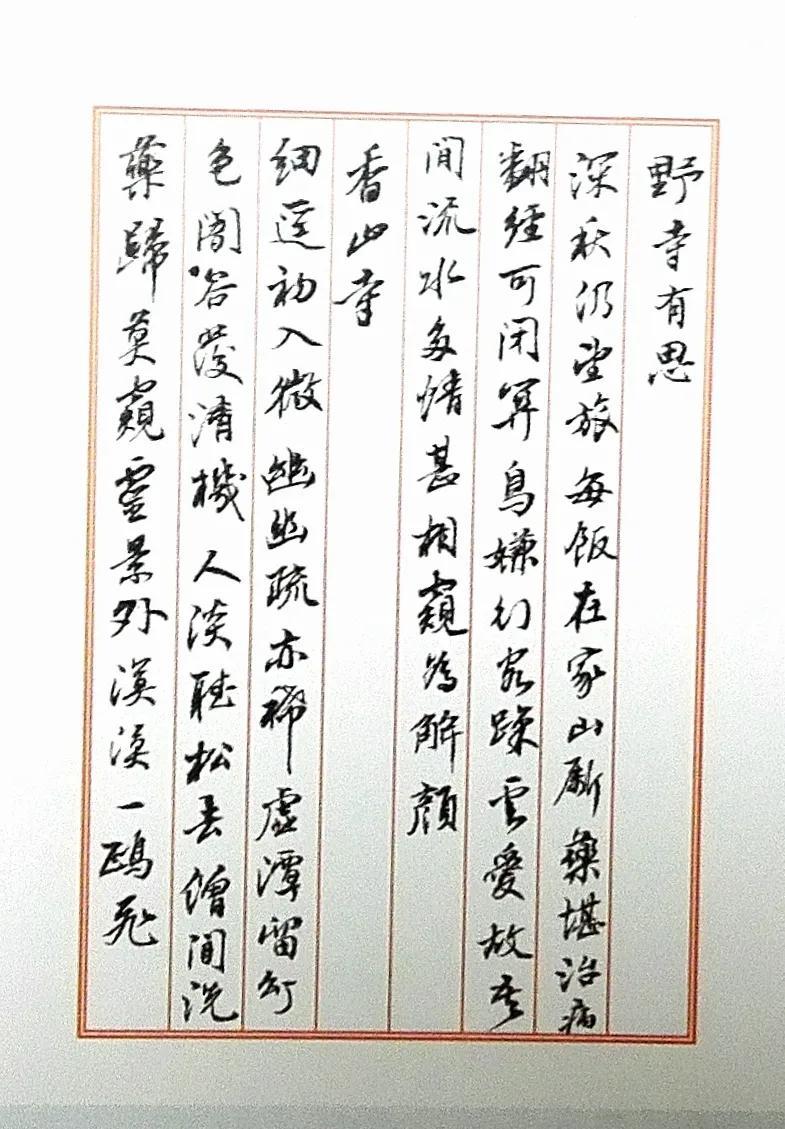 野寺有思
深秋仍坐旅每飯在家山斸藥堪治病
翻經可閉關鳥嫌行客躁雲愛故吾
閒流水多情甚相窺為解顏
香山寺
細逕初入微幽幽疏亦稀虛潭留幻
色闇谷發清機人淡聽松去僧閒洗
藥歸莫窺靈景外漠漠一鷗飛